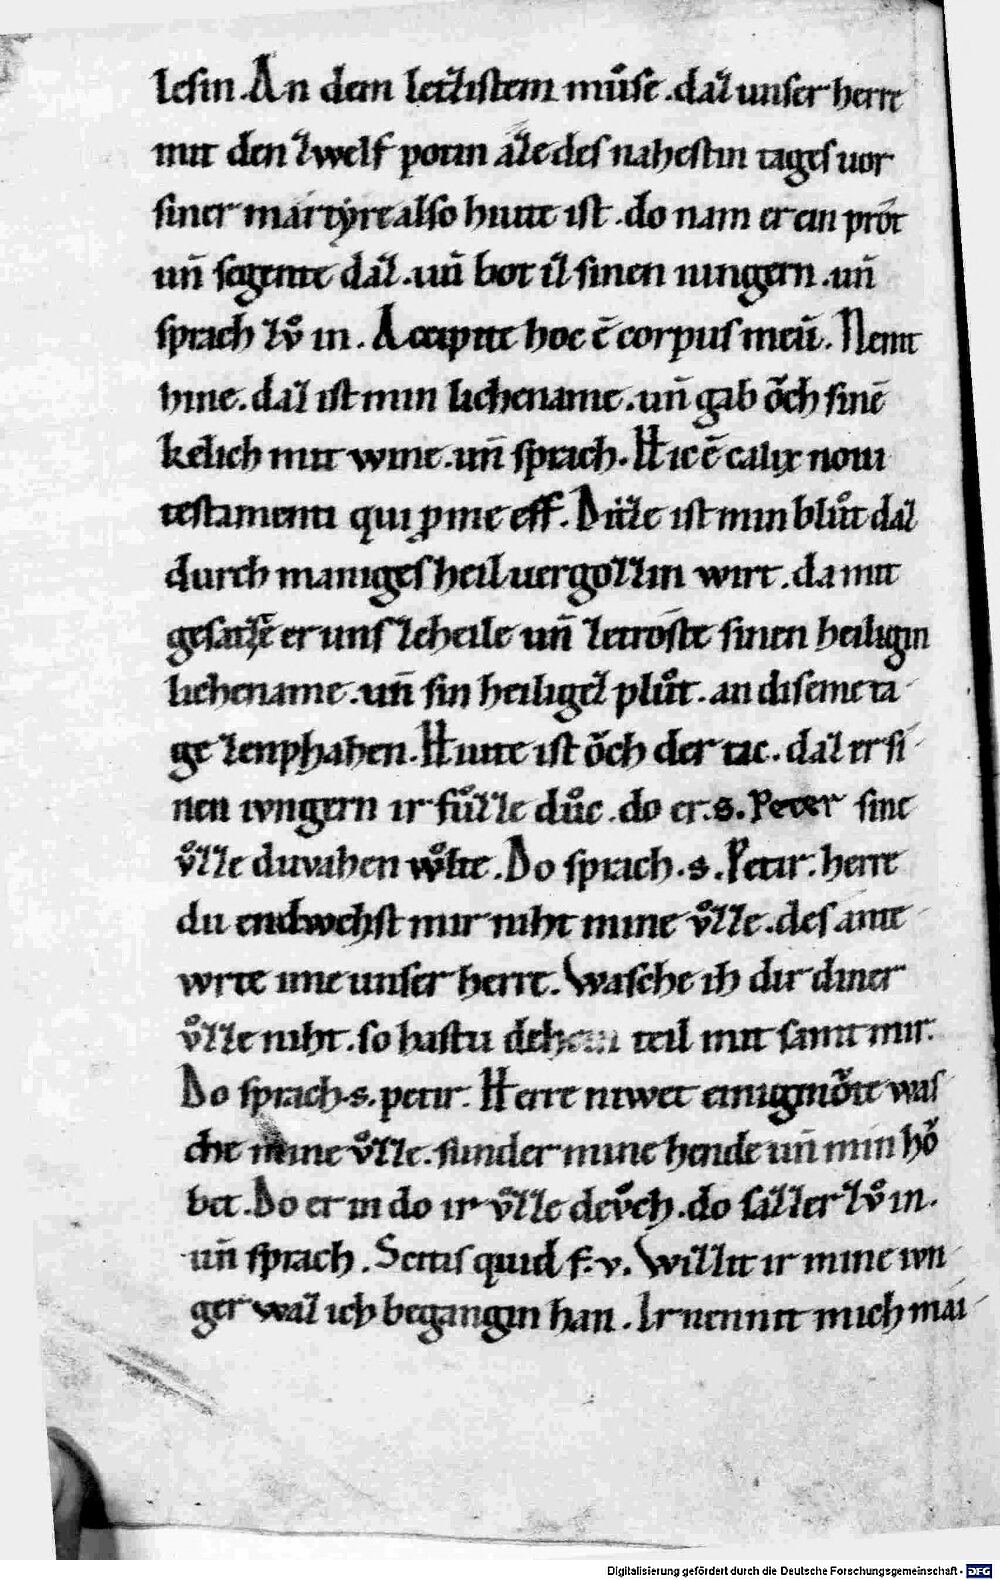 lesin. An dem letzistem můse. daz unser herre
mit den zwelf potin aze des nahestin tages uor
siner martyre also hiute ist. do nam er ein prot
un̄ segente daz. un̄ bot iz sinen iungern. un̄
sprach zv̊ in. Accipite hoc ē corpus meū. Nemt
hine. daz ist min lichename. un̄ gab och sinē
kelich mit wine. un̄ sprach. Hic ē calix noui
testamenti qui ꝓ me eff. Dize ist min blůt daz
durch maniges heil uergozzin wirt. da mit
er uns zeheile un̄ zetroste sinen heiligin
lichename. un̄ sin heiligez plůt. an diseme ta-
ge zenphahen. Hiute ist och der tac. daz er si-
nen ivngern ir fůzze důc. do er. s. Peter sine
v̊zze duvahen wolte. Do sprach. s. Petir. herre
du endwehst mir niht mine v̊zze. des ant-
wrte ime unser herre. Wasche ih dir diner
v̊zze niht. so hastu dehein teil mit samt mir.
Do sprach. s. petir. Herre niwet einigmote was-
che mine v̊zze. sunder mine hende un̄ min ho-
bet. Do er in do ir v̊zze devch. do sazzer zv̊ in.
un̄ sprach. Scitis quid f. v. Wizzit ir mine ivn-
ger waz ich begangin han. Ir nennit mich mai-
Digitalisierung gefördert durch die Deutsche Forschungsgemeinschaft - DFG